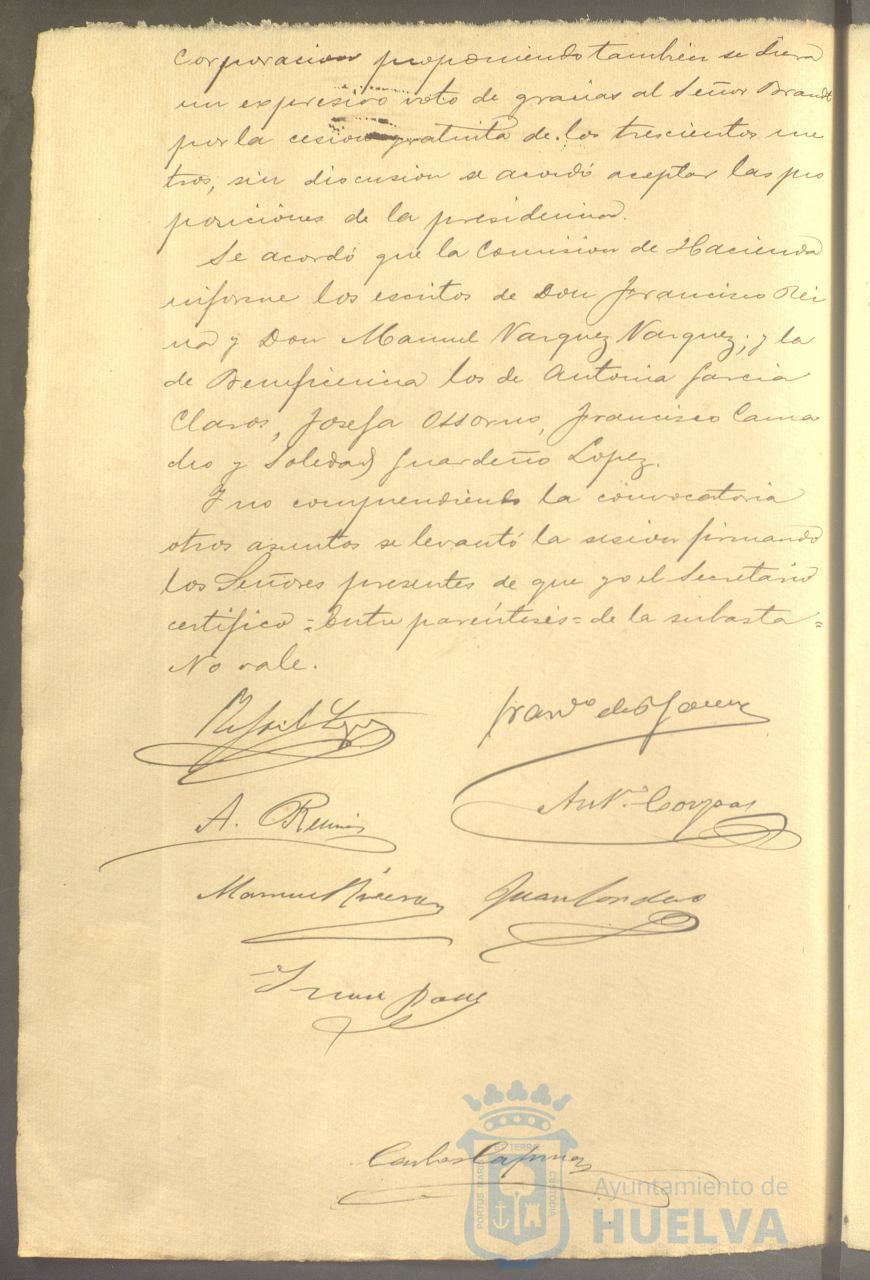 Corporacion proponiendo tambien se diera
un expresivo voto de gracias al Señor Brandt
por la cesion gratuita de los trescientos me
tros, sin discusion se acordó aceptar las pro
posiciones de la presidencia.
Se acordó que la Comision de Hacienda
informe los escritos de Don Francisco Rei
na y Don Manuel Vazquez Vazquez; y la
de Beneficencia los de Antonia Garcia
Claros, Josefa Ossorno, Francisco Cama
cho y Soledad Guardeño Lopez.
Y no comprendiendo la convocatoria
otros asuntos se levantó la sesion firmando
los Señores presentes de que yo el Secretario
certifico = Entre paréntesis = de la subasta =
No vale.
A.
Antº Corpas
Manuel Rivera Juan Cordero
Carlos
PORTUS MARIS ET TERRE CUSTODIA
Ayuntamiento de
HUELVA